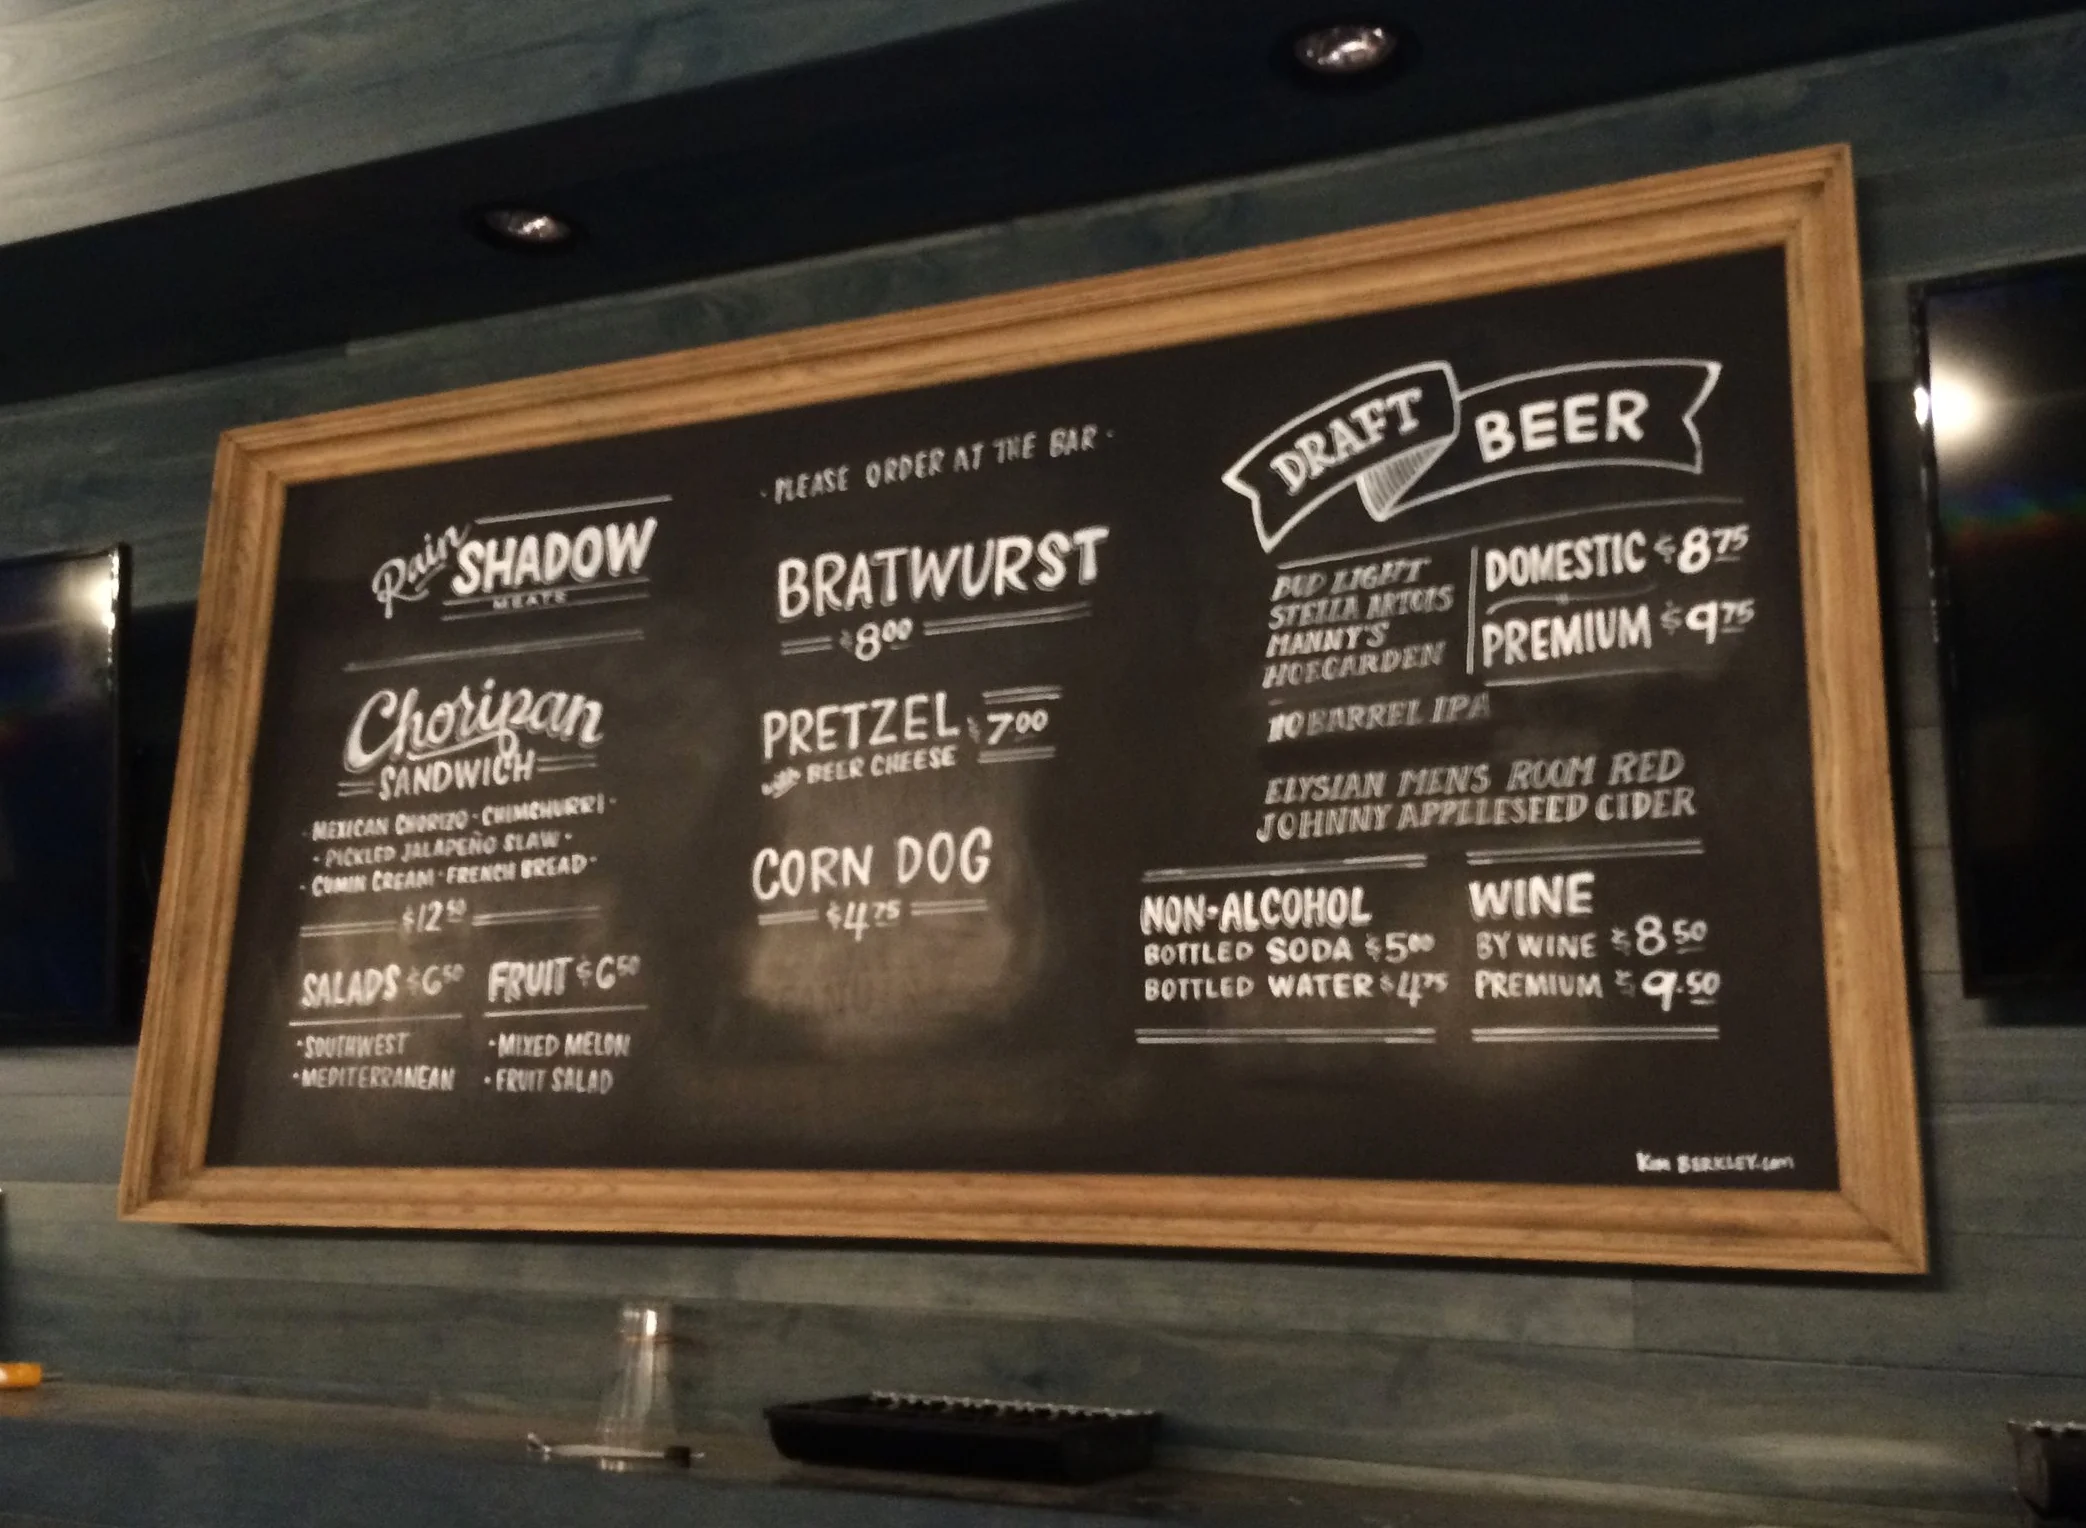 ·PLEASE ORDER AT THE BAR·
Rain SHADOW
MEATS
Choripan
SANDWICH
·MEXICAN CHORIZO·CHIMCHURRI·
·PICKLED JALAPEÑO SLAW·
·CUMIN CREAM·FRENCH BREAD·
$12 50
SALADS $6 50
·SOUTHWEST
·MEDITERRANEAN
FRUIT $6 50
·MIXED MELON
·FRUIT SALAD
BRATWURST
$8 00
PRETZEL $7 00
with BEER CHEESE
CORN DOG
$4 75
DRAFT BEER
BUD LIGHT
STELLA ARTOIS
MANNY'S
HOEGARDEN
DOMESTIC $8 75
PREMIUM $9 75
10 BARREL IPA
ELYSIAN MENS ROOM RED
JOHNNY APPLLESEED CIDER
NON-ALCOHOL
BOTTLED SODA $5 00
BOTTLED WATER $4 75
WINE
BY WINE $8 50
PREMIUM $9.50
Kim BERKLEY.com